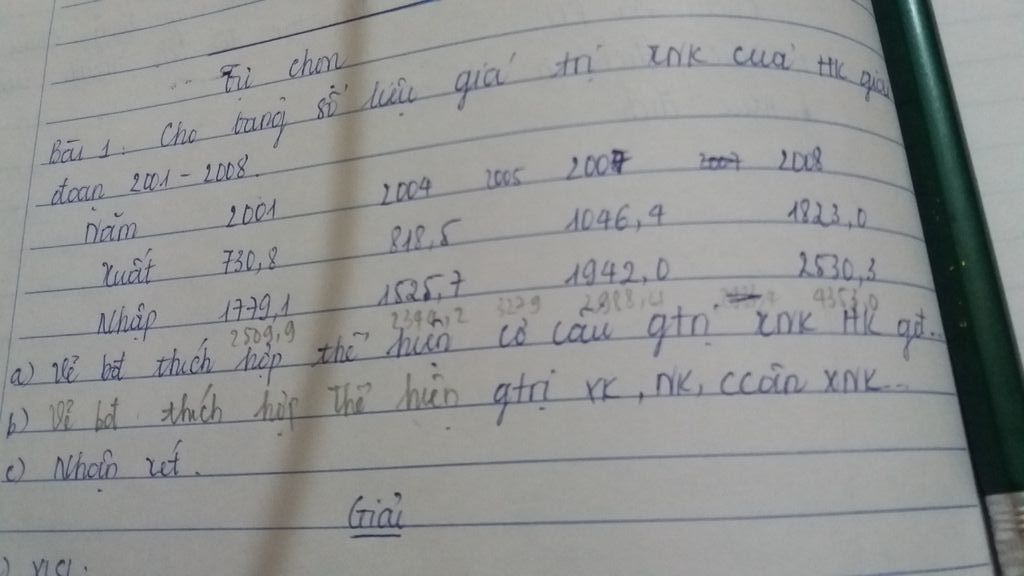 Tự chọn
Bài 1. Cho bảng số liệu giá trị XNK của HK giai
đoạn 2001 - 2008.
Năm 2001 2004 2005 2007 2007 2008
Xuất 730,8 818,5 1046,4 1823,0
Nhập 1779,1 1525,7 1942,0 2530,3
2509,9 2344,2 3229 2988,4 4353,0
a) Vẽ bđ thích hợp thể hiện cơ cấu gtrị XNK HK gđ...
b) Vẽ bđ thích hợp thể hiện gtrị XK, NK, ccân XNK...
c) Nhận xét.
Giải